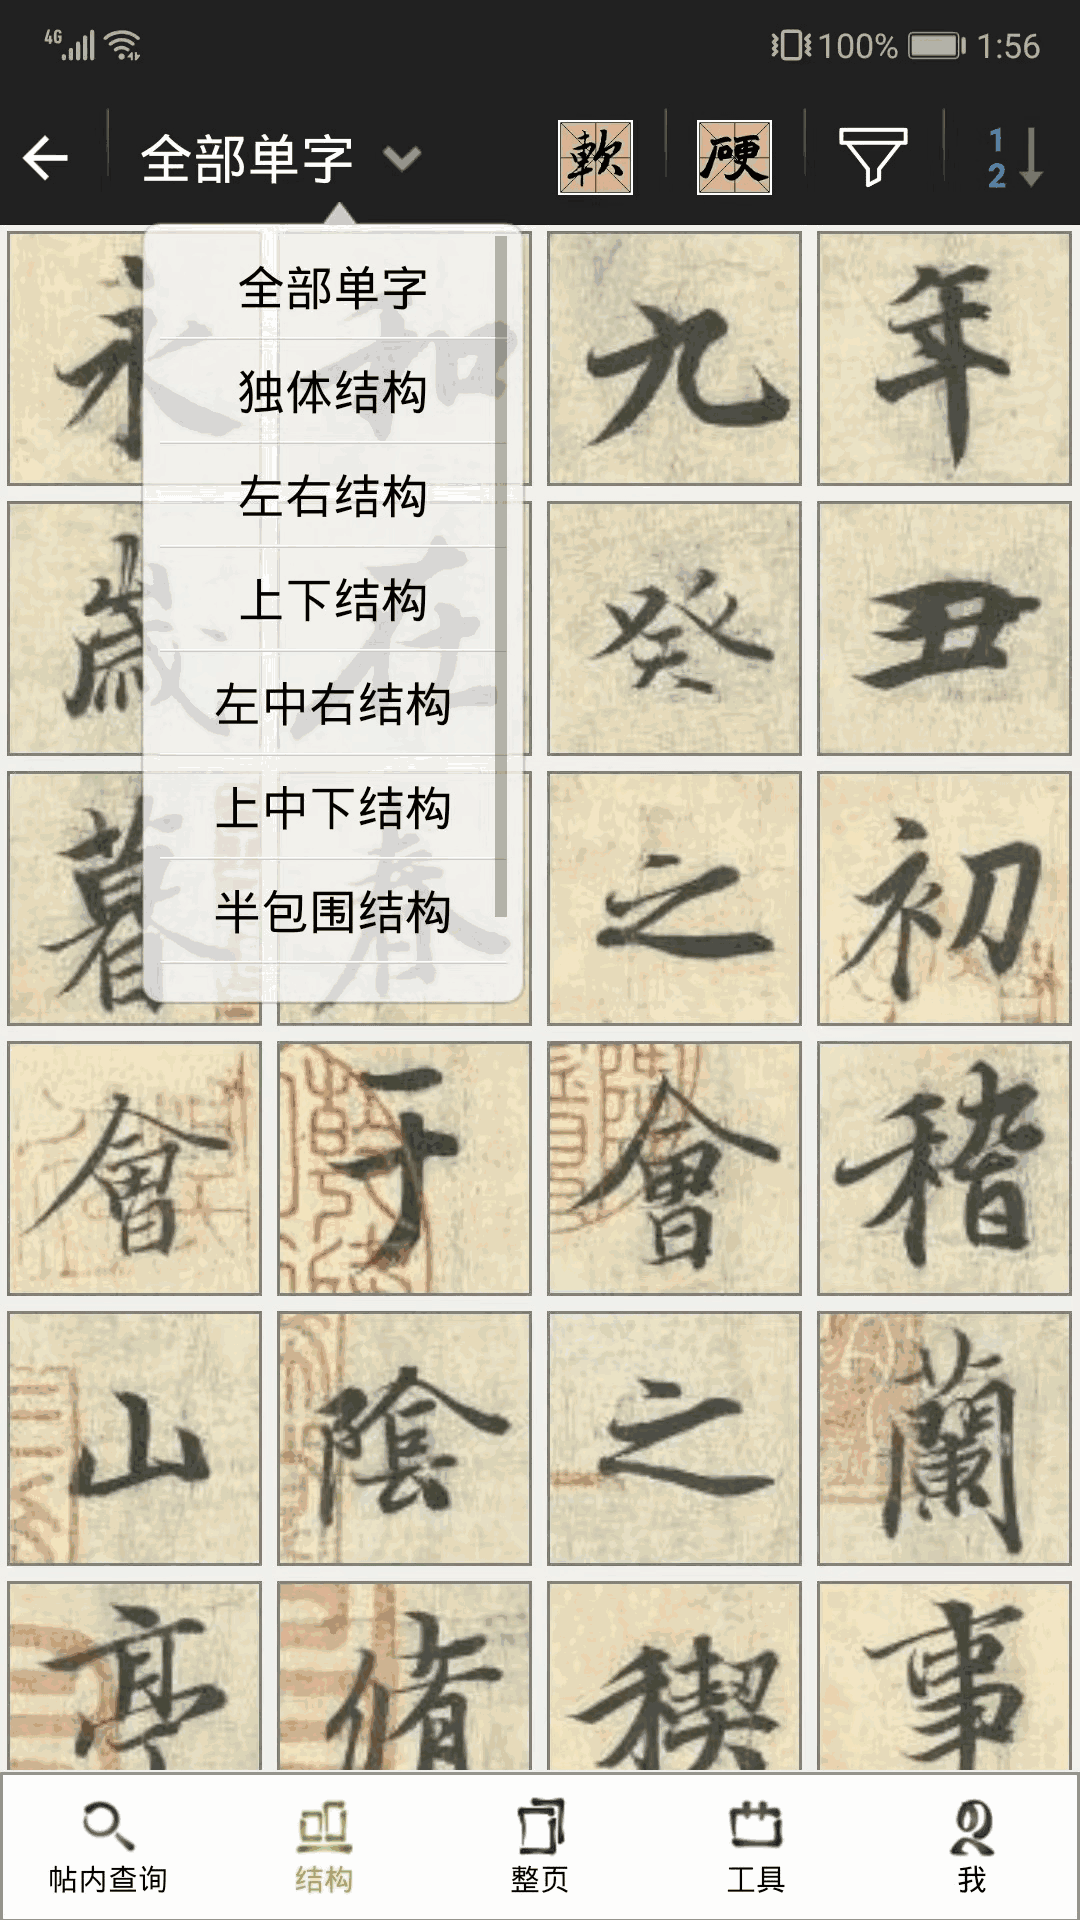 4G 100% 1:56
全部单字 軟 硬 1 2
全部单字
独体结构
左右结构
上下结构
左中右结构
上中下结构
半包围结构
永 和 九 年
歲 在 癸 丑
暮 春 之 初
會 于 會 稽
山 陰 之 蘭
亭 脩 稧 事
帖内查询 结构 整页 工具 我